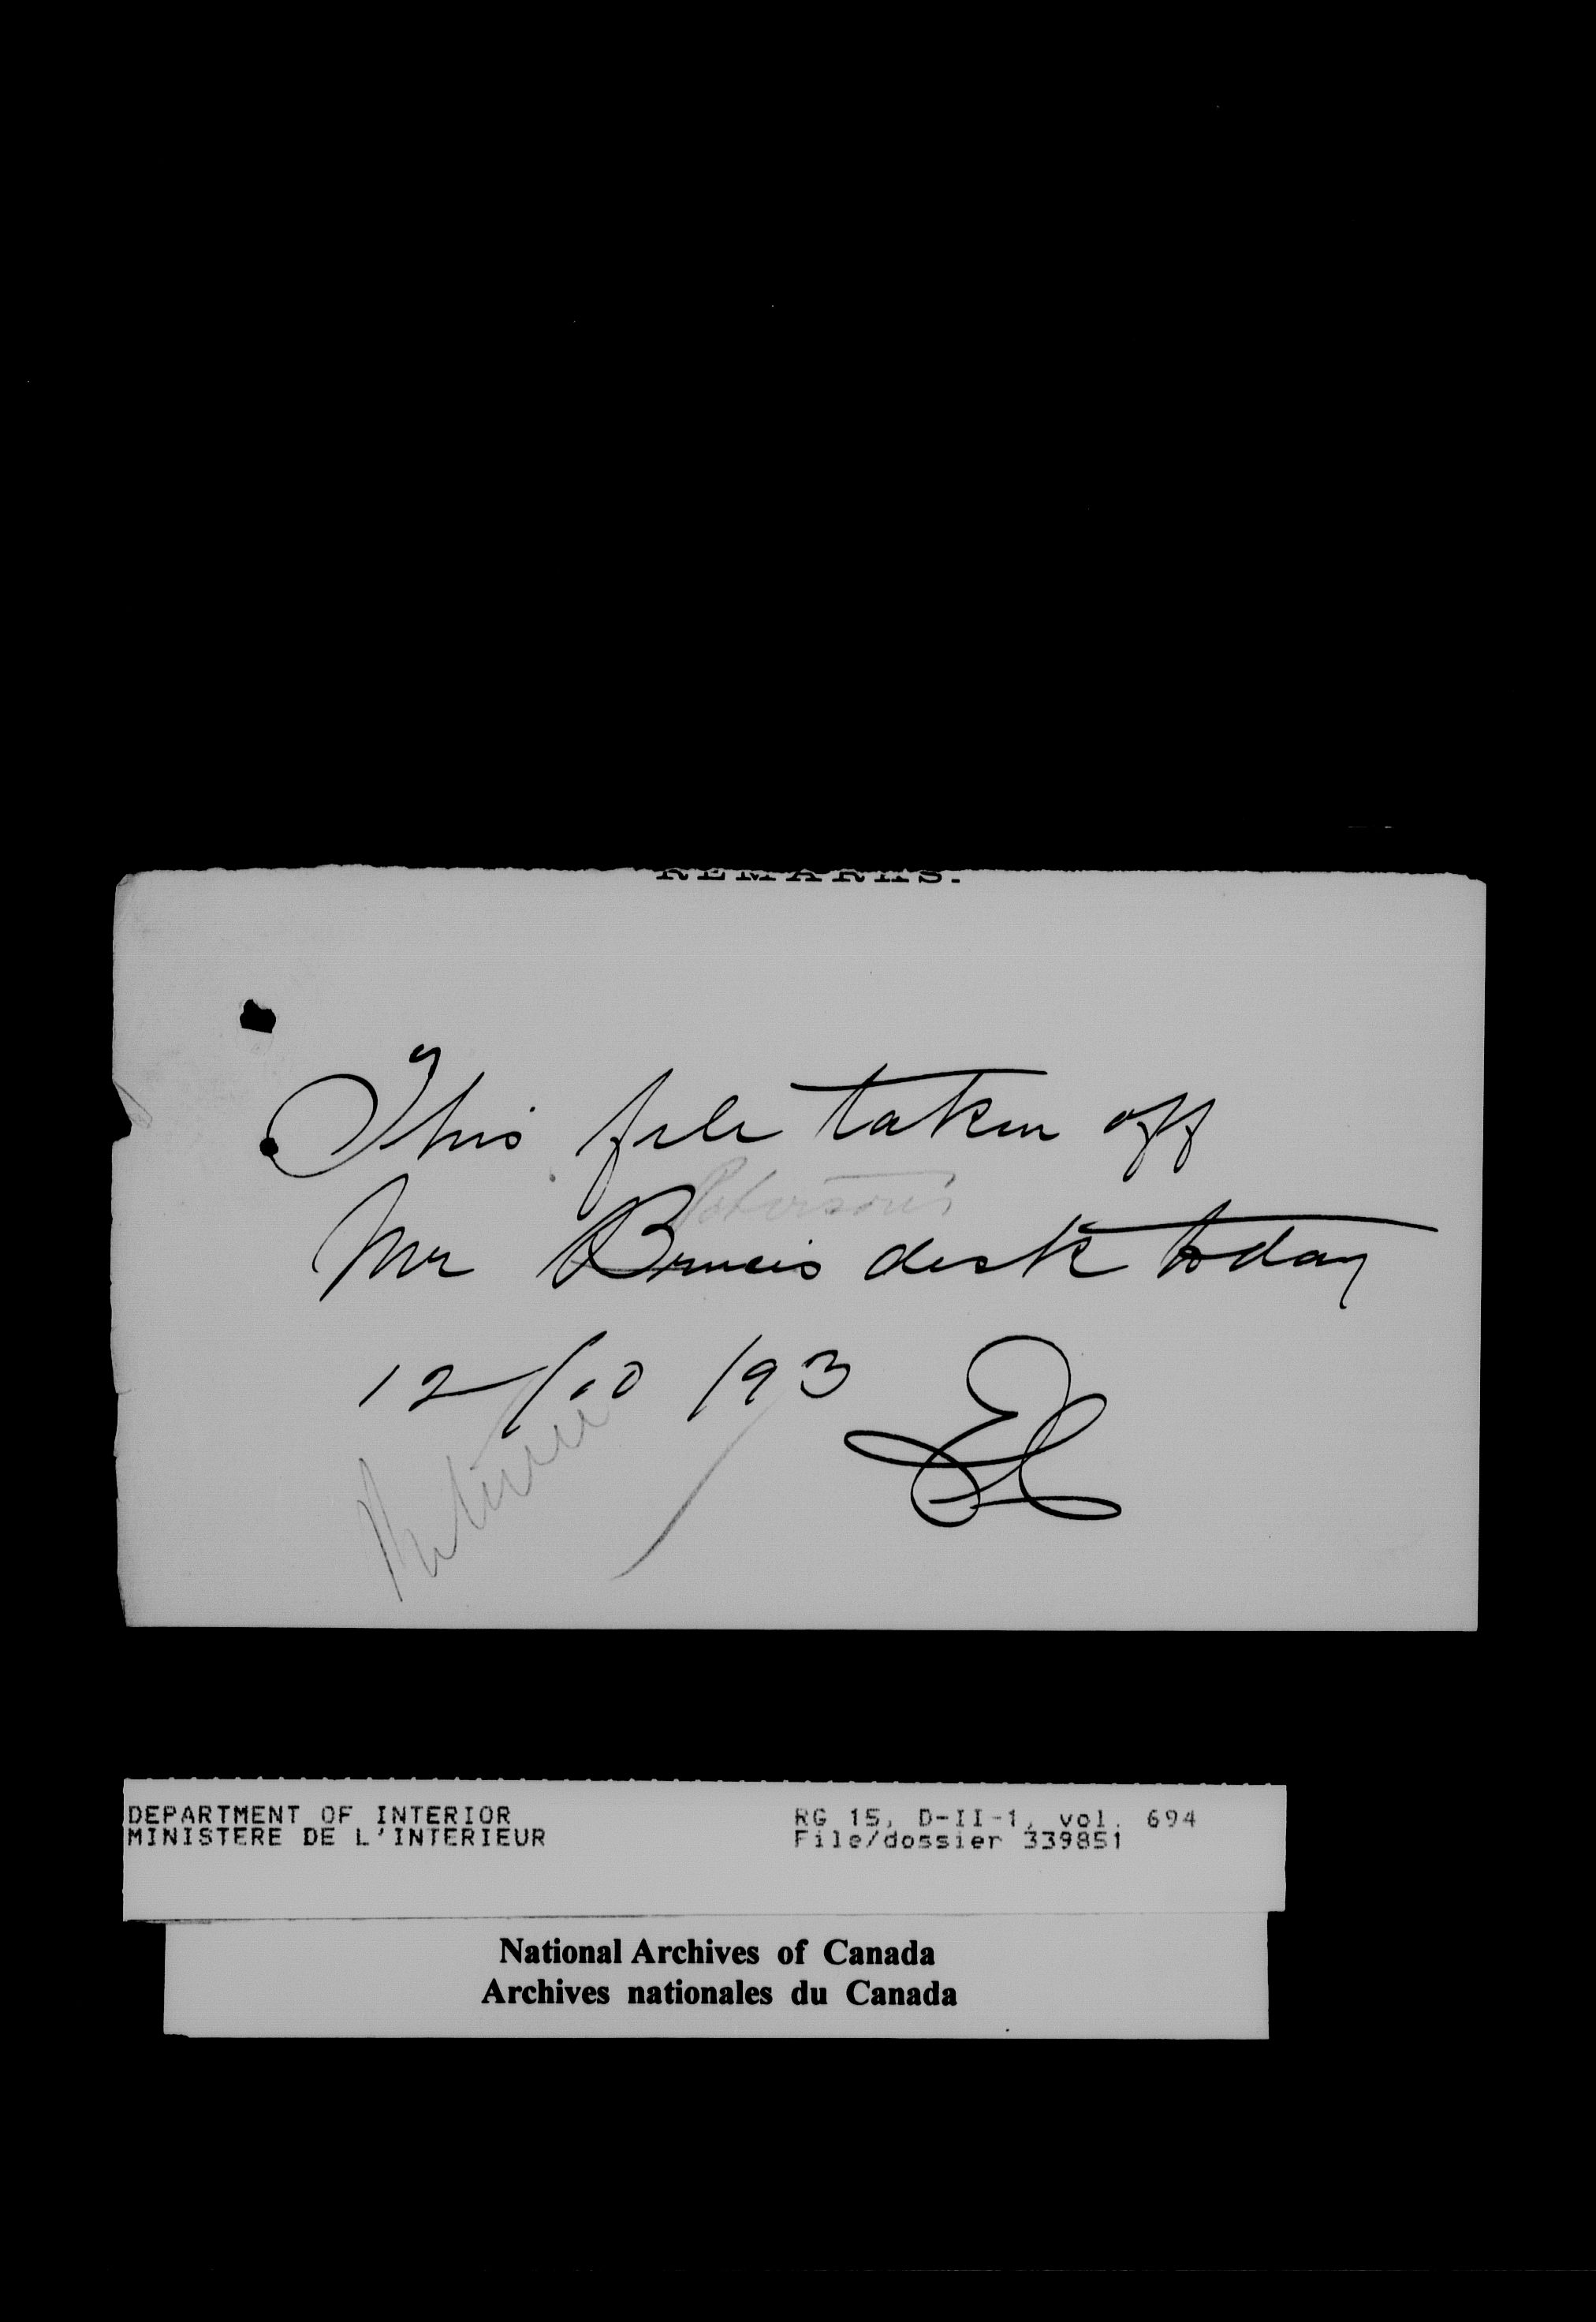 REMARKS.
This file taken off
Robertson's
Mr Bruce's desk today
12/10/93 EC
Return
DEPARTMENT OF INTERIOR
MINISTERE DE L'INTERIEUR
RG 15, D-II-1, vol. 694
File/dossier 339851
National Archives of Canada
Archives nationales du Canada